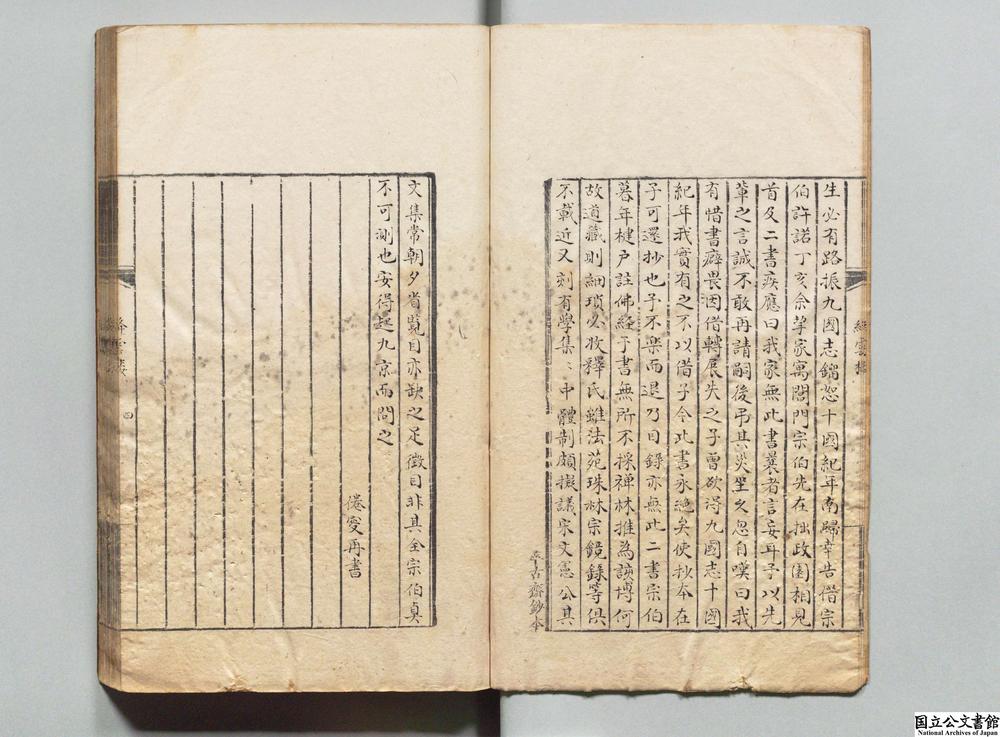 生必有路振九國志鎦恕十國紀年南歸幸告借宗
伯許諾丁亥余挈家寓閶門宗伯先在拙政園相見
首及二書疾應曰我家無此書曩者言妄耳予以先
輩之言誠不敢再請嗣後弔其災坐久忽自嘆曰我
有惜書癖畏因借轉展失之子曾欲得九國志十國
紀年我實有之不以借子今此書永絶矣使抄夲在
子可還抄也予不樂而退乃目錄亦無此二書宗伯
暮年楗户註佛經于書無所不採禅林推為該博何
故道藏則細瑣必收釋氏雖法苑珠林宗鏡錄等俱
不載近又刻有學集〻中體制頗擬議宋文憲公其
齋鈔本
文集常朝夕省覧目亦缺之足徵目非其全宗伯真
不可測也安得起九京而問之
倦叟再書
絳雲樓
四
国立公文書館
National Archives of Japan